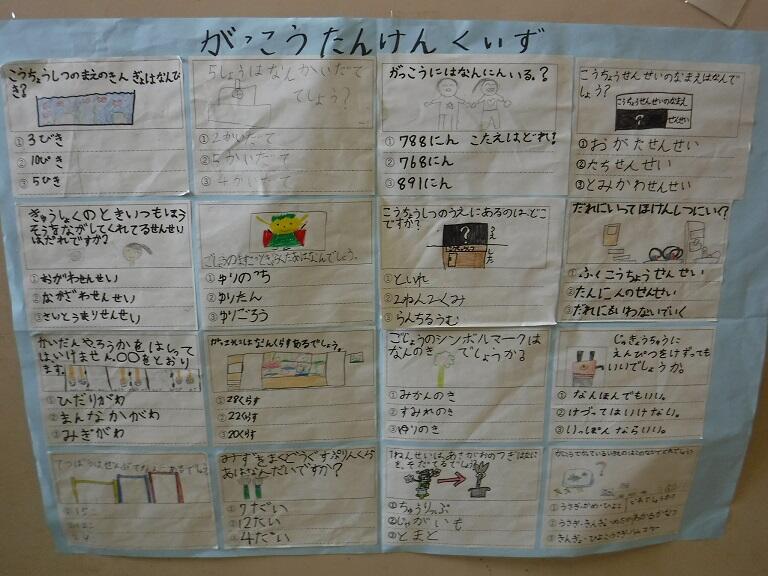 がっこうたんけんくいず
こうちょうしつのまえのきんぎょはなんび
き?
①3びき
②10ぴき
③5ひき
5しょうはなんかいだて
でしょう?
①2かいだて
②5かいだて
③4かいだて
がっこうにはなんにんいる。?
①788にん こたえはどれ!
②768にん
③891にん
こうちょうせんせいのなまえはなんで
しょう?
こうちょうせんせいのなまえ
? せんせい
①おがたせんせい
②たちせんせい
③とみかわせんせい
きゅうしょくのときいつもほう
そうをながしてくれてるせんせい
はだれですか?
①おがわせんせい
②ながざわせんせい
③さいとうまりせんせい
①ゆりのっち
②ゆりたん
③ゆりごろう
こうちょうしつのうえにあるのはどこ
ですか?
?
うえ
した
①といれ
②2ねん2くみ
③らんちるうむ
だれにいってほけんしつにいく?
①ふくこうちょうせんせい
②たんにんのせんせい
③だれにもいわないでいく
かいだんやろうかをはしって
はいけません。〇〇をとおり
ます。
①ひだりがわ
②まんなかがわ
③みぎがわ
なんくらすあるでしょう。
①28くらす
②22くらす
③20くらす
ごしょうのシンボルマークは
なんのき でしょうか?
①みかんのき
②すみれのき
③ゆりのき
じゅぎょうちゅうに
えんぴつをけずっても
いいでしょうか。
①なんぼんでもいい。
②けづってはいけない。
③いっぽんならいい。
てつぼうはぜんぶで
みずをまくどうぐすぷりんくら
あはなんだいですか?
①7だい
②12だい
③4だい
1ねんせいは、あさがおのつぎはなに
を、そだてるでしょう
①ちゅうりっぷ
②じゃがいも
③とまと
?
①うさぎ・かめ・ひよこ
②うさぎ・きんぎょ
③きんぎょ・ひよこうさぎ・ハムスター